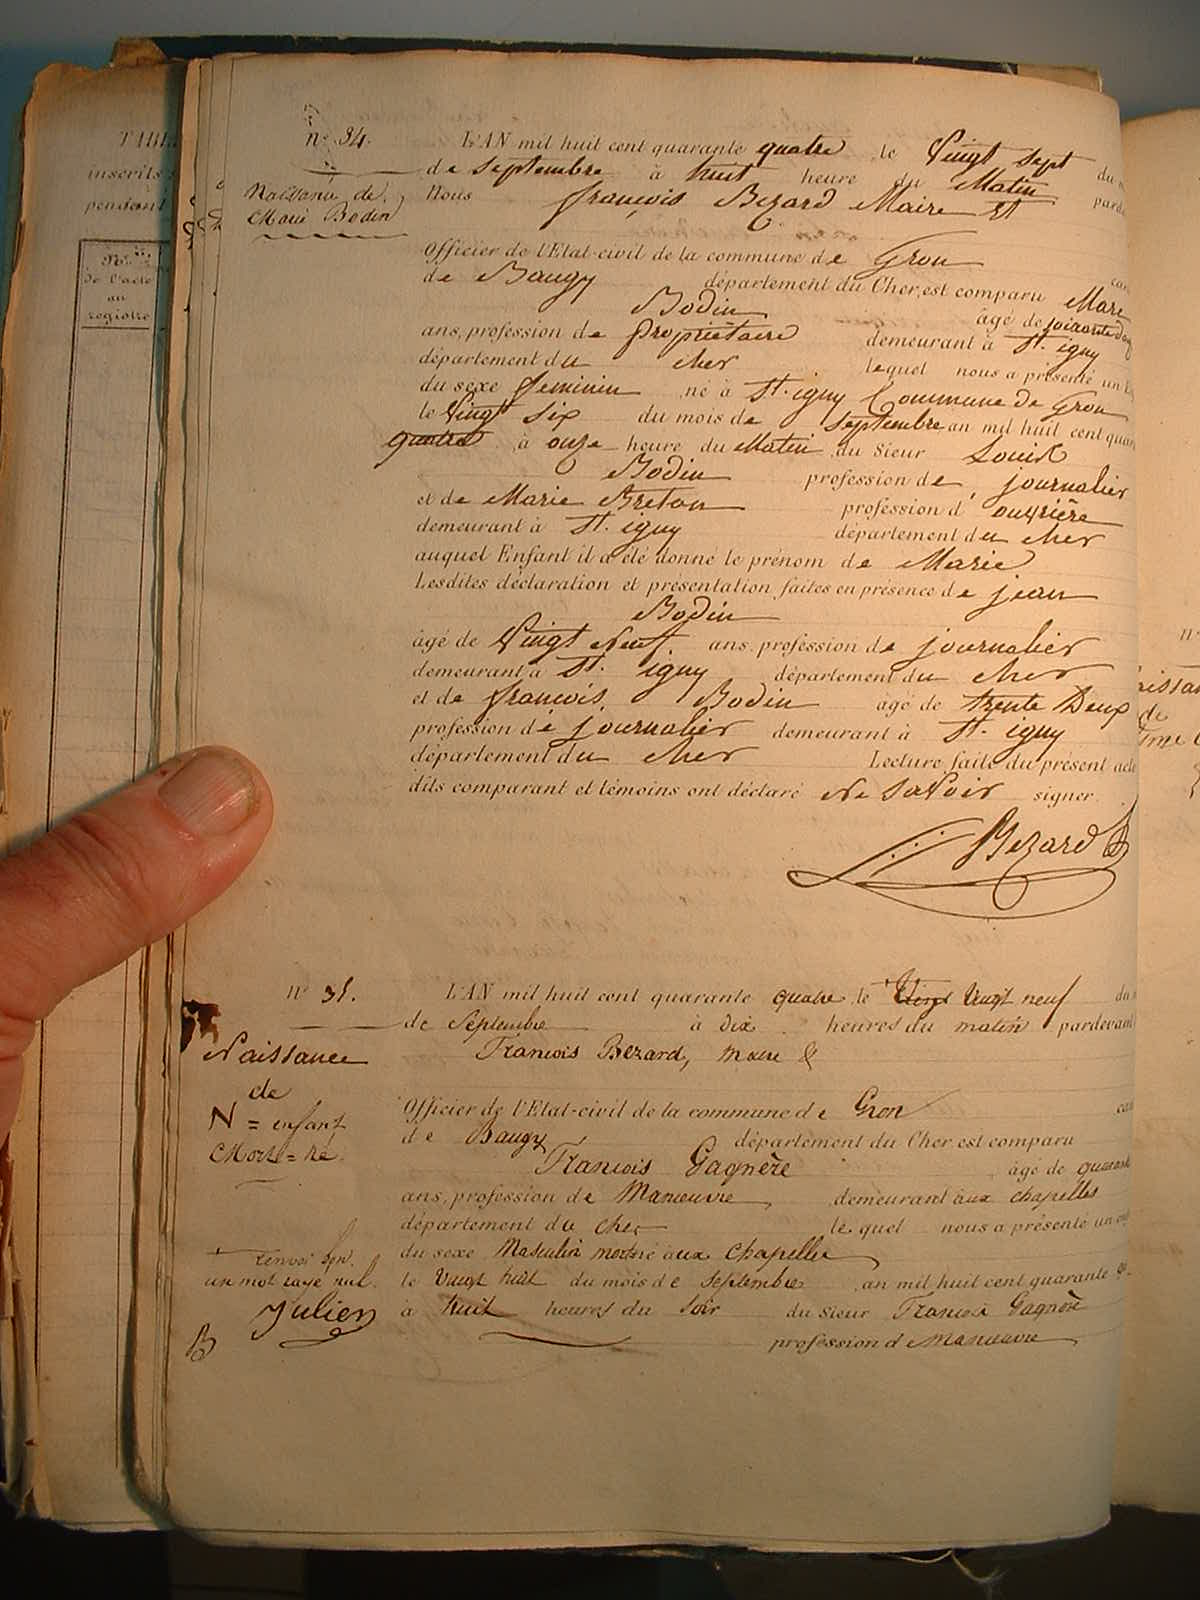 TABL
inscrits
pendant
No.
de l'acte
au
registre
n° 34.
Naissance de
Marie Bodin
L'AN mil huit cent quarante quatre le Vingt sept du
de septembre à huit heure du Matin parde
Nous françois Bezard Maire Et
Officier de l'Etat-civil de la commune de Gron can
de Baugy département du Cher, est comparu Marc
Bodin âgé de soixante
ans, profession de propriétaire demeurant à St. igny
département du cher lequel nous a présenté un
du sexe feminin né à St. igny Commune de Gron
le Vingt six du mois de septembre an mil huit cent quar
quatre à onze heure du Matin du sieur Louis
Bodin profession de journalier
et de Marie Breton profession d' ouvrière
demeurant à St. igny département du cher
auquel Enfant il a été donné le prénom de Marie
Lesdites déclaration et présentation faites en présence de jean
Bodin
âgé de Vingt Neuf ans. profession de journalier
demeurant à St. igny département du cher
et de françois Bodin âgé de trente Deux
profession de journalier demeurant à St. igny
département du cher Lecture faite du présent acte
dits comparant et témoins ont déclaré Ne savoir signer.
Bezard
n° 35.
Naissance
de
N = enfant
Mort = né
L'AN mil huit cent quarante quatre le Vingt Vingt neuf du
de Septembre à dix heures du matin pardevant
François Bezard, maire &
Officier de l'Etat-civil de la commune de Gron can
de Baugy département du Cher est comparu
François Gagnère âgé de quarante
ans, profession de Manœuvre demeurant aux chapelles
département du cher le quel nous a présenté un
du sexe Masculin mort né aux chapelles
renvoi bon.
un mot rayé nul.
Julien
B
le Vingt huit du mois de septembre an mil huit cent quarante
à huit heures du soir du sieur François Gagnère
profession de Manœuvre
n°
aissan
de